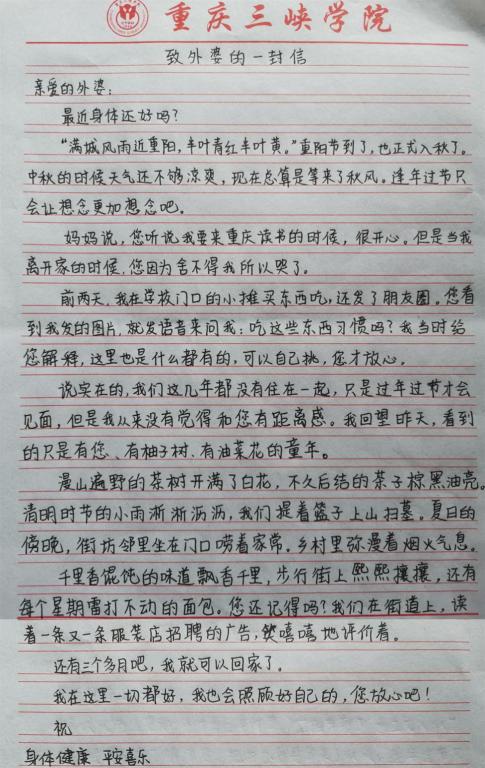 重庆三峡学院
致外婆的一封信
亲爱的外婆：
最近身体还好吗？
“满城风雨近重阳，半叶青红半叶黄。”重阳节到了，也正式入秋了。
中秋的时候天气还不够凉爽，现在总算是等来了秋风。逢年过节只
会让想念更加想念吧。
妈妈说，您听说我要来重庆读书的时候，很开心。但是当我
离开家的时候，您因为舍不得我所以哭了。
前两天，我在学校门口的小摊买东西吃，还发了朋友圈。您看
到我发的图片，就发语音来问我：吃这些东西习惯吗？我当时给
您解释，这里也是什么都有的，可以自己挑，您才放心。
说实在的，我们这几年都没有住在一起，只是过年过节才会
见面，但是我从来没有觉得和您有距离感。我回望昨天，看到
的只是有您、有柚子树、有油菜花的童年。
漫山遍野的茶树开满了白花，不久后结的茶子棕黑油亮。
清明时节的小雨淅淅沥沥，我们提着篮子上山扫墓。夏日的
傍晚，街坊邻里坐在门口唠着家常。乡村里弥漫着烟火气息。
千里香馄饨的味道飘香千里，步行街上熙熙攘攘，还有
每个星期雷打不动的面包。您还记得吗？我们在街道上，读
着一条又一条服装店招聘的广告，笑嘻嘻地评价着。
还有三个多月吧，我就可以回家了。
我在这里一切都好，我也会照顾好自己的，您放心吧！
祝
身体健康 平安喜乐